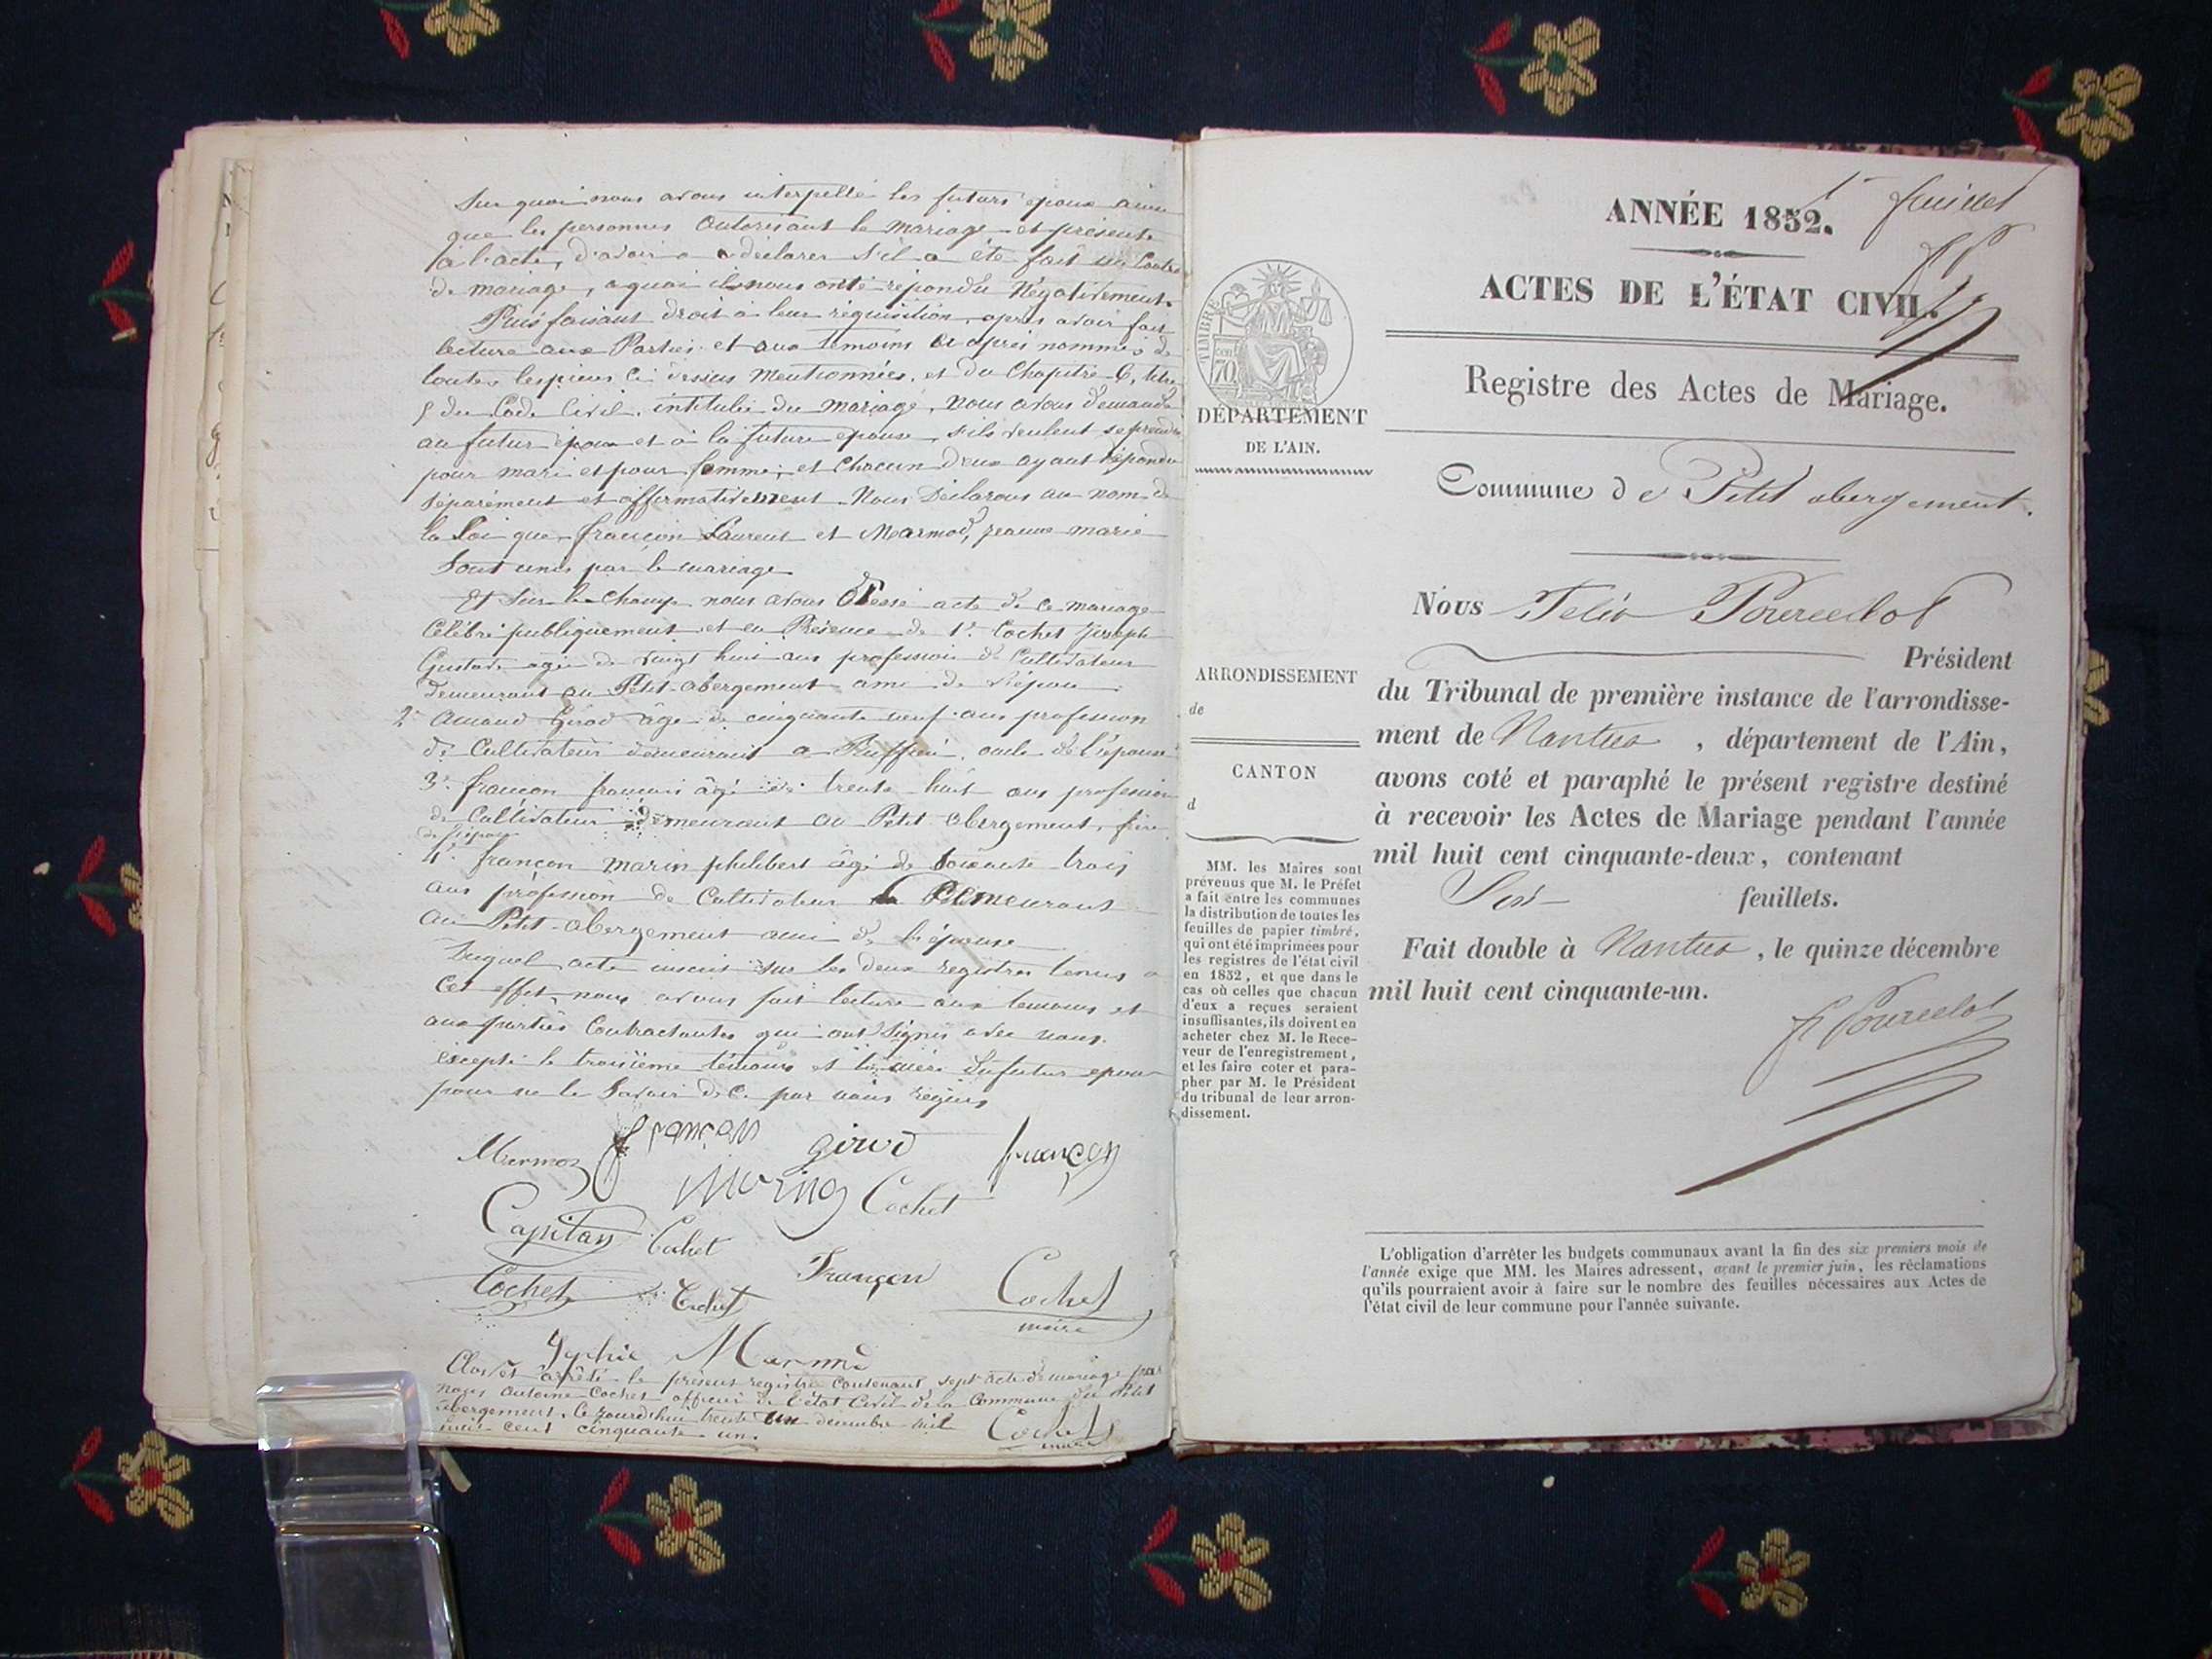 Sur quoi nous avons interpellé les futurs époux ainsi
que les personnes autorisant le mariage et présente
à l'acte, d'avoir a a déclarer s'il a été fait un Contra
de mariage, a quoi ils nous onté répondu Négativement.
Puis faisant droit à leur réquisition, après avoir fait
lecture aux Parties et aux témoins ci après nommés de
toutes les pieces ci dessus mentionnées, et du Chapitre 6, titre
5 du Code Civil, intitulée du mariage, Nous avons demandé
au futur époux et à la future epouse, s'ils veulent se prendre
pour mari et pour femme; et chacun d'eux ayant répondu
séparément et affirmativement. Nous Déclarons au nom de
la Loi que françon Laurent et Marmod, jeanne marie
sont unis par le mariage
Et Sur le Champ nous avons Dressé acte de ce mariage
Célébré publiquement et en Présence de 1° Cochet Joseph
Gustave agé de vingt huit ans profession de Cultivateur
demeurant au Petit-abergement ami de l'épou
2° Amand Girod âgé de cinquante neuf ans profession
de Cultivateur demeurant a Ruffieu, oncle de l'épouse
3° françon françois âgé de trente-huit ans profession
de Cultivateur demeurant au Petit abergement, frère
de l'époux
4° françon marin philibert âgé de soixante trois
ans profession de Cultivateur Demeurant
au Petit-abergement ami de l'épouse
Duquel acte inscrit sur les deux registres tenus a
Cet effet, nous avons fait lecture aux temoins et
aux parties Contractantes qui ont Signés avec nous.
excepté le troisième témoins et la mère du futur epoux
pour ne le Savoir de ce par nous requis
Mermoz françon girod françon
Cochet
Capitan Cochet
Cochet Cochet Françon Cochet
maire
Sophie Marmod
Clos et arrêté le présent registre contenant sept acte de mariage par
Nous Antoine Cochet officier de l'état Civil de la Commune du Petit
abergement. Ce jourd'hui trente un decembre mil
huit cent cinquante un.
Cochet
maire
1er feuillet
ANNÉE 1852.
ACTES DE L'ÉTAT CIVIL.
Registre des Actes de Mariage.
TIMBRE
70
DÉPARTEMENT
DE L'AIN.
Commune de Petit abergement.
Nous Félix Pourcelot
Président
ARRONDISSEMENT
de
CANTON
d
du Tribunal de première instance de l'arrondisse-
ment de Nantua, département de l'Ain,
avons coté et paraphé le présent registre destiné
à recevoir les Actes de Mariage pendant l'année
mil huit cent cinquante-deux, contenant
Six feuillets.
Fait double à Nantua, le quinze décembre
mil huit cent cinquante-un.
F Pourcelot
MM. les Maires sont
prévenus que M. le Préfet
a fait entre les communes
la distribution de toutes les
feuilles de papier timbré,
qui ont été imprimées pour
les registres de l'état civil
en 1852, et que dans le
cas où celles que chacun
d'eux a reçues seraient
insuffisantes, ils doivent en
acheter chez M. le Rece-
veur de l'enregistrement,
et les faire coter et para-
pher par M. le Président
du tribunal de leur arron-
dissement.
L'obligation d'arrêter les budgets communaux avant la fin des six premiers mois de
l'année exige que MM. les Maires adressent, avant le premier juin, les réclamations
qu'ils pourraient avoir à faire sur le nombre des feuilles nécessaires aux Actes de
l'état civil de leur commune pour l'année suivante.